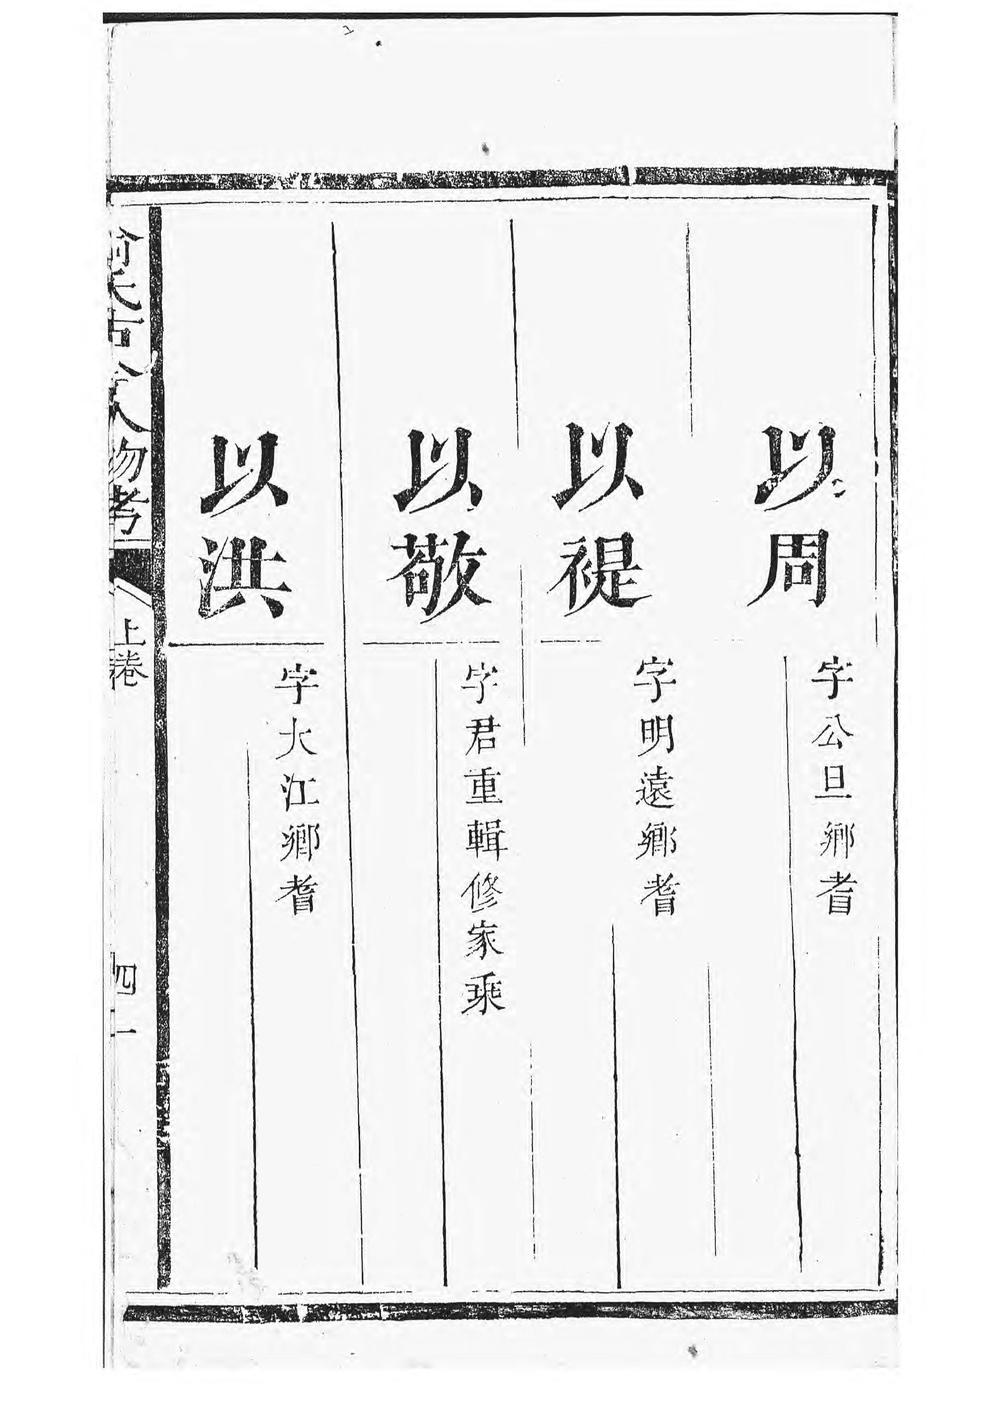 以周
字公旦鄉耆
以禔
字明遠鄉耆
以敬
字君重輯修家乘
以洪
字大江鄉耆
天古今人物考
上卷
四一